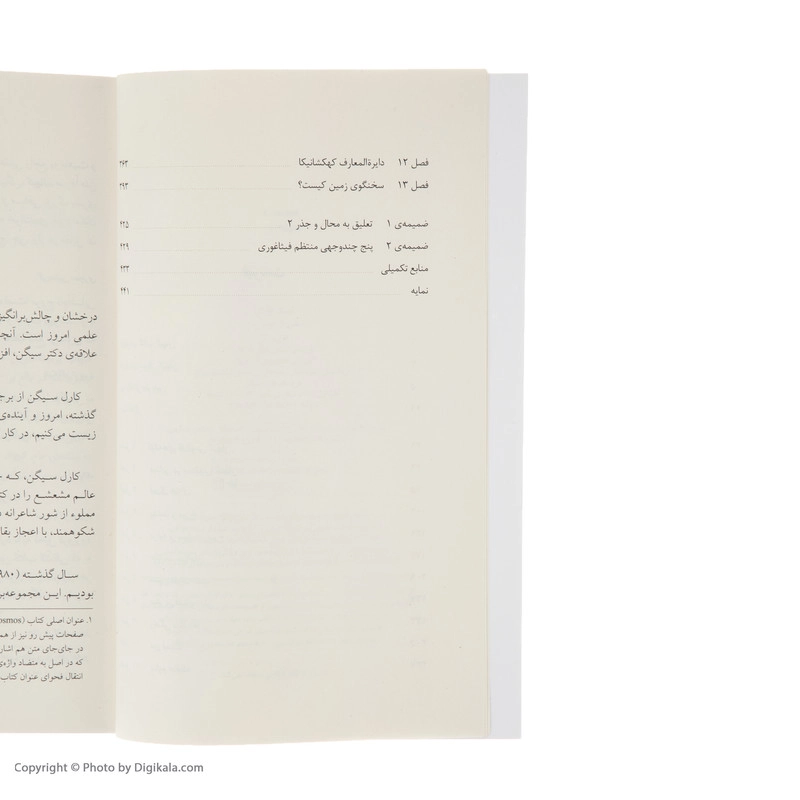 فصل ۱۲ دایرة‌المعارف کهکشانیکا ۳۶۳
فصل ۱۳ سخنگوی زمین کیست؟ ۳۹۳
ضمیمه‌ی ۱ تعلیق به محال و جذر ۲ ۴۲۵
ضمیمه‌ی ۲ پنج چندوجهی منتظم فیثاغوری ۴۲۹
منابع تکمیلی ۴۳۳
نمایه ۴۴۱
درخشان و چالش‌برانگیز
علمی امروز است. آنچ
علاقه‌ی دکتر سیگن، افز
کارل سیگن از برج
گذشته، امروز و آینده‌ی
زیست می‌کنیم، در کار
کارل سیگن، که
عالم مشعشع را در کت
مملوء از شور شاعرانه
شکوهمند، با اعجاز بقا
سال گذشته (۹۸۰
بودیم. این مجموعه‌بر
۱. عنوان اصلی کتاب (osmos
صفحات پیش رو نیز از هم
در جای‌جای متن هم اشار
که در اصل به متضاد واژه‌ی
انتقال فحوای عنوان کتاب
Copyright © Photo by Digikala.com